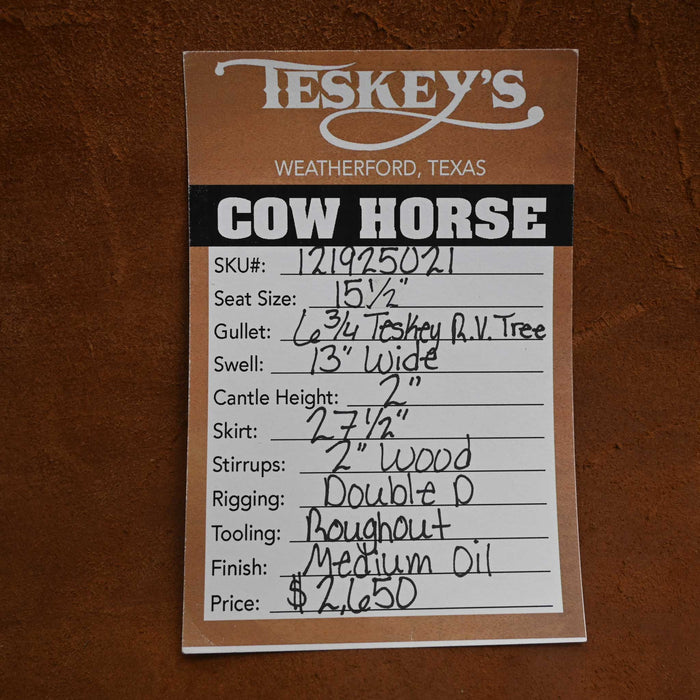 TESKEY'S
WEATHERFORD, TEXAS
COW HORSE
SKU#: 121925021
Seat Size: 15 1/2"
Gullet: 6 3/4 Teskey R.V. Tree
Swell: 13" Wide
Cantle Height: 2"
Skirt: 27 1/2"
Stirrups: 2" Wood
Rigging: Double D
Tooling: Roughout
Finish: Medium Oil
Price: $2,650